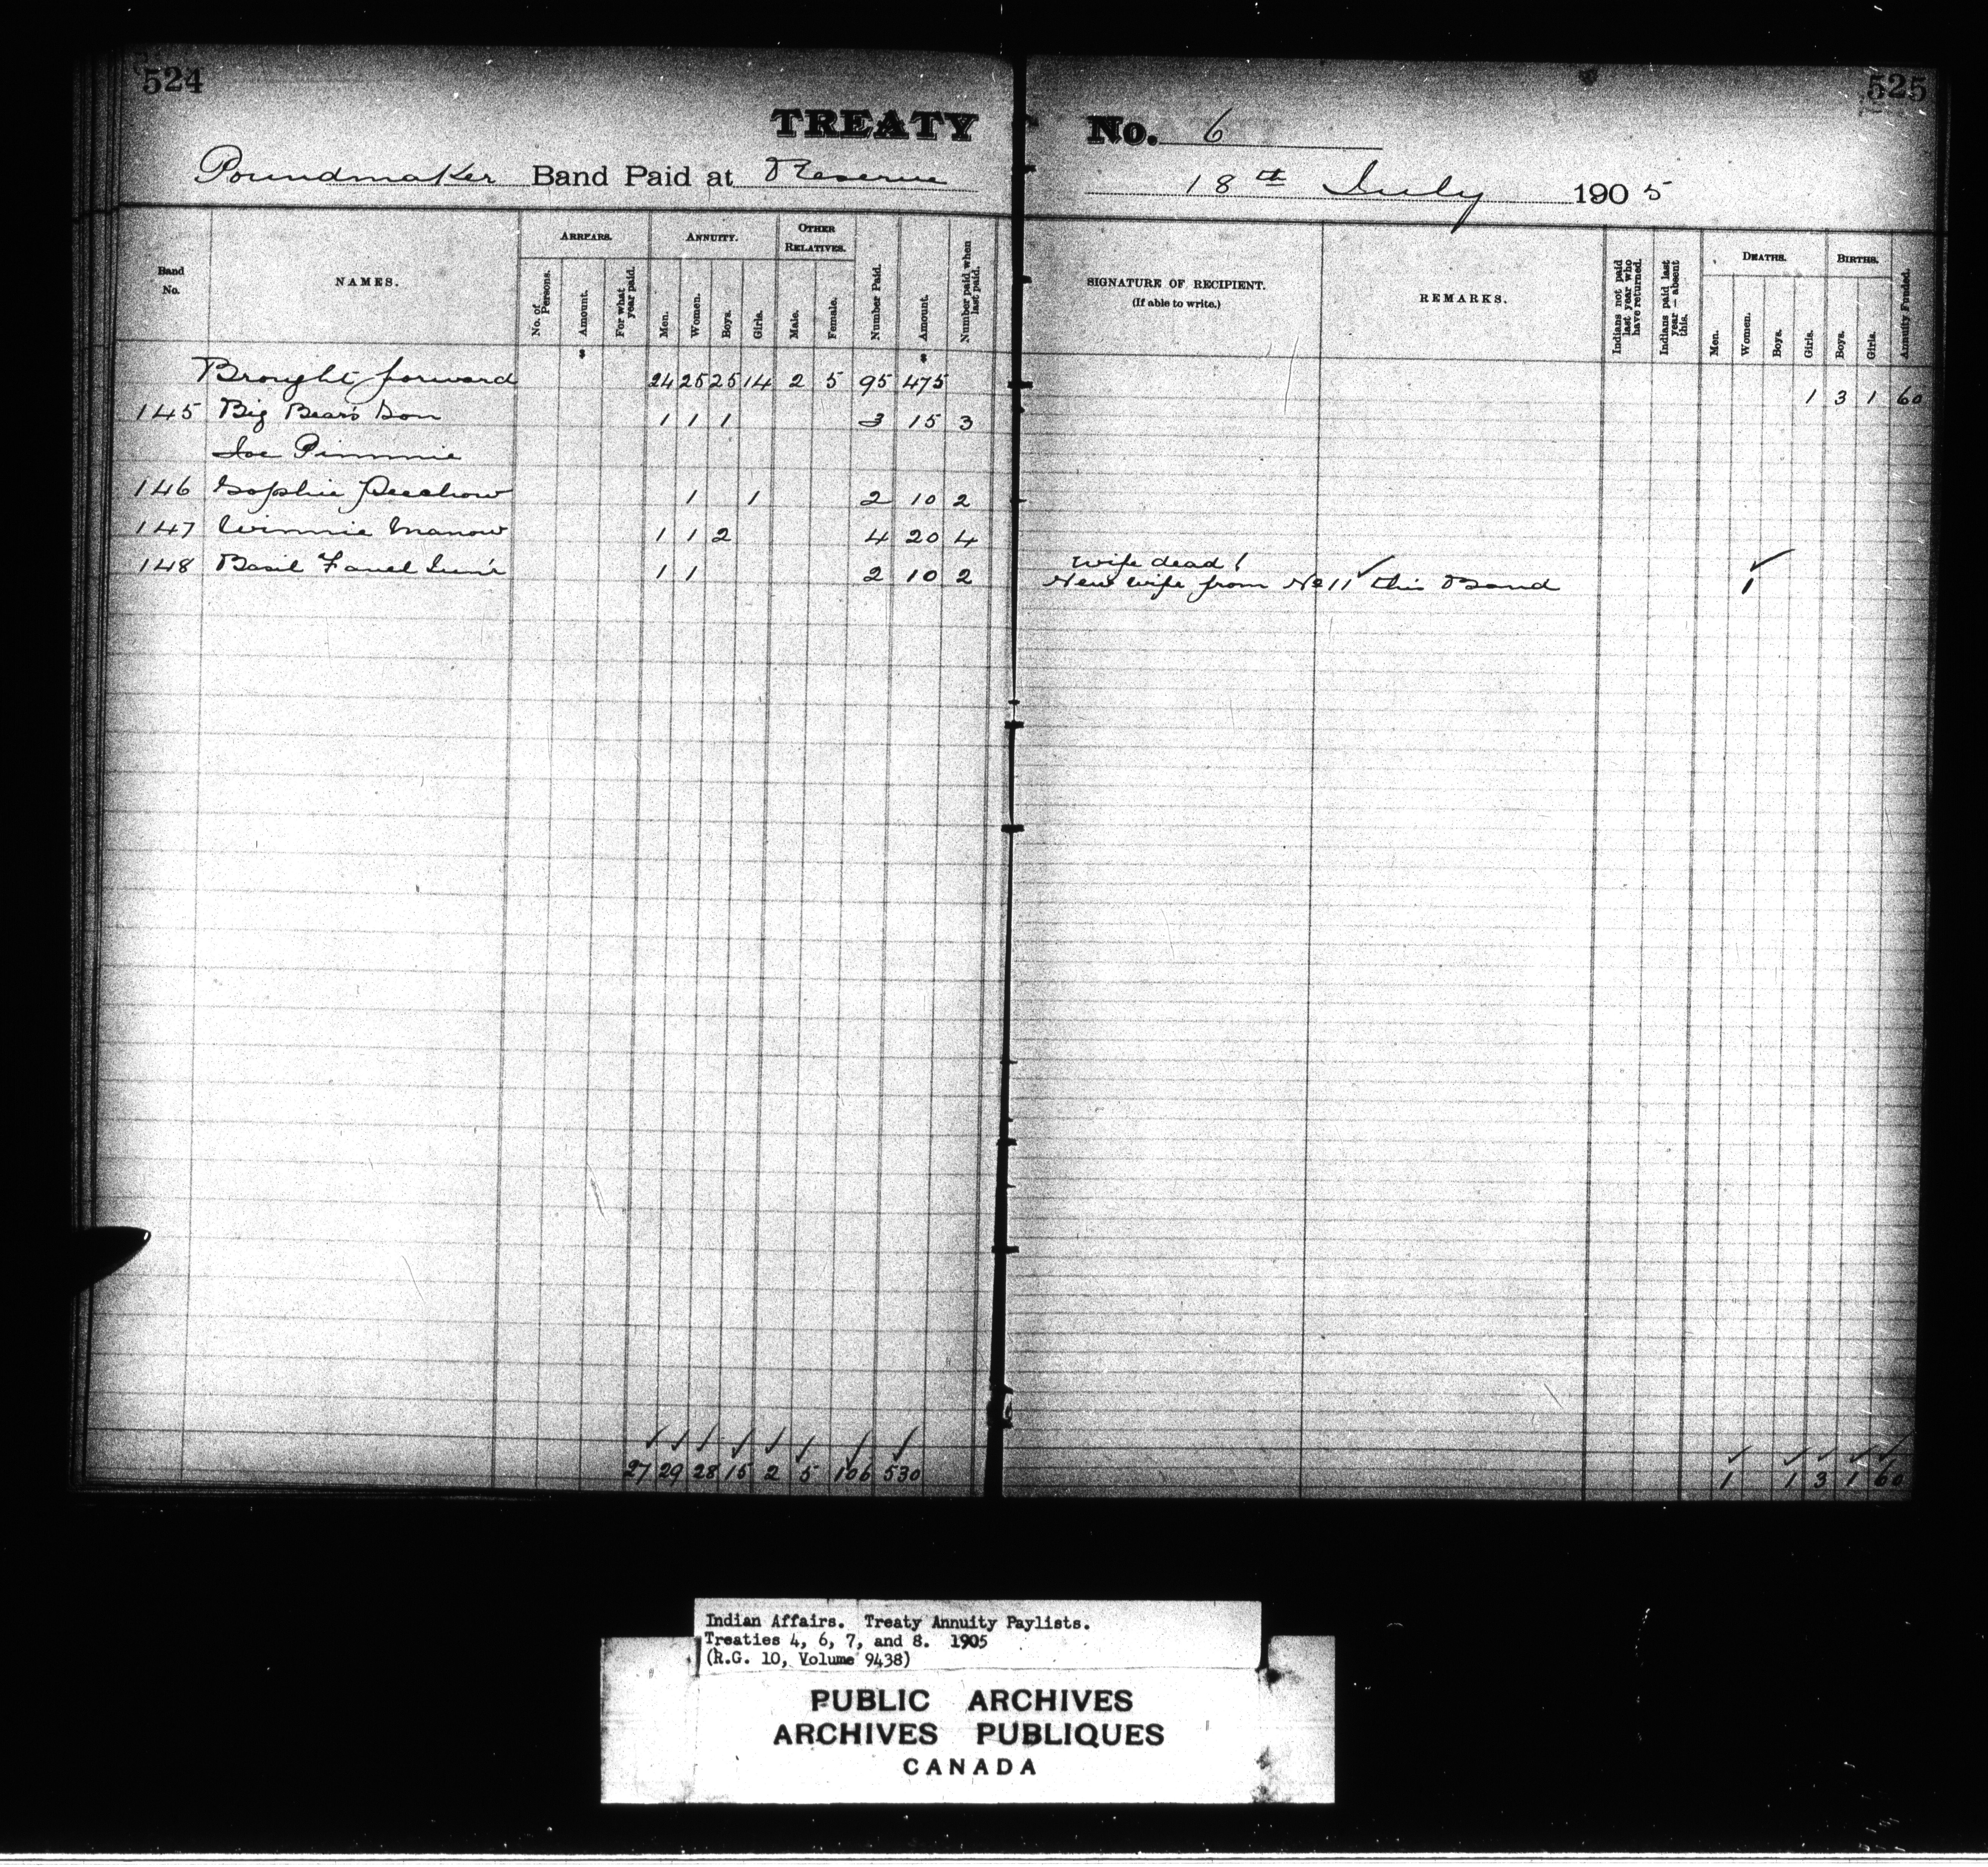 524
525
TREATY No. 6
Poundmaker Band Paid at Reserve 18th July 1905
Band No.
NAMES.
ARREARS.
No. of Persons.
Amount.
For what year paid.
ANNUITY.
Men.
Women.
Boys.
Girls.
OTHER RELATIVES.
Male.
Female.
Number Paid.
Amount.
Number paid when last paid.
SIGNATURE OF RECIPIENT.
(If able to write.)
REMARKS.
Indians not paid last year who have returned.
Indians paid last year — absent this.
DEATHS.
Men.
Women.
Boys.
Girls.
BIRTHS.
Boys.
Girls.
Annuity Funded.
Brought forward 24 25 25 14 2 5 95 475 1 3 1 60
145 Big Bear's Son 1 1 1 3 15 3
Joe Pimmie
146 Sophie 1 1 2 10 2
147 Winnie Manow 1 1 2 4 20 4
148 Basil Favel Jun'r 1 1 2 10 2 wife dead 1
New wife from No 11 this Band 1
27 29 28 15 2 5 106 530 1 1 3 1 60
Indian Affairs. Treaty Annuity Paylists.
Treaties 4, 6, 7, and 8. 1905
(R.G. 10, Volume 9438)
PUBLIC ARCHIVES
ARCHIVES PUBLIQUES
CANADA